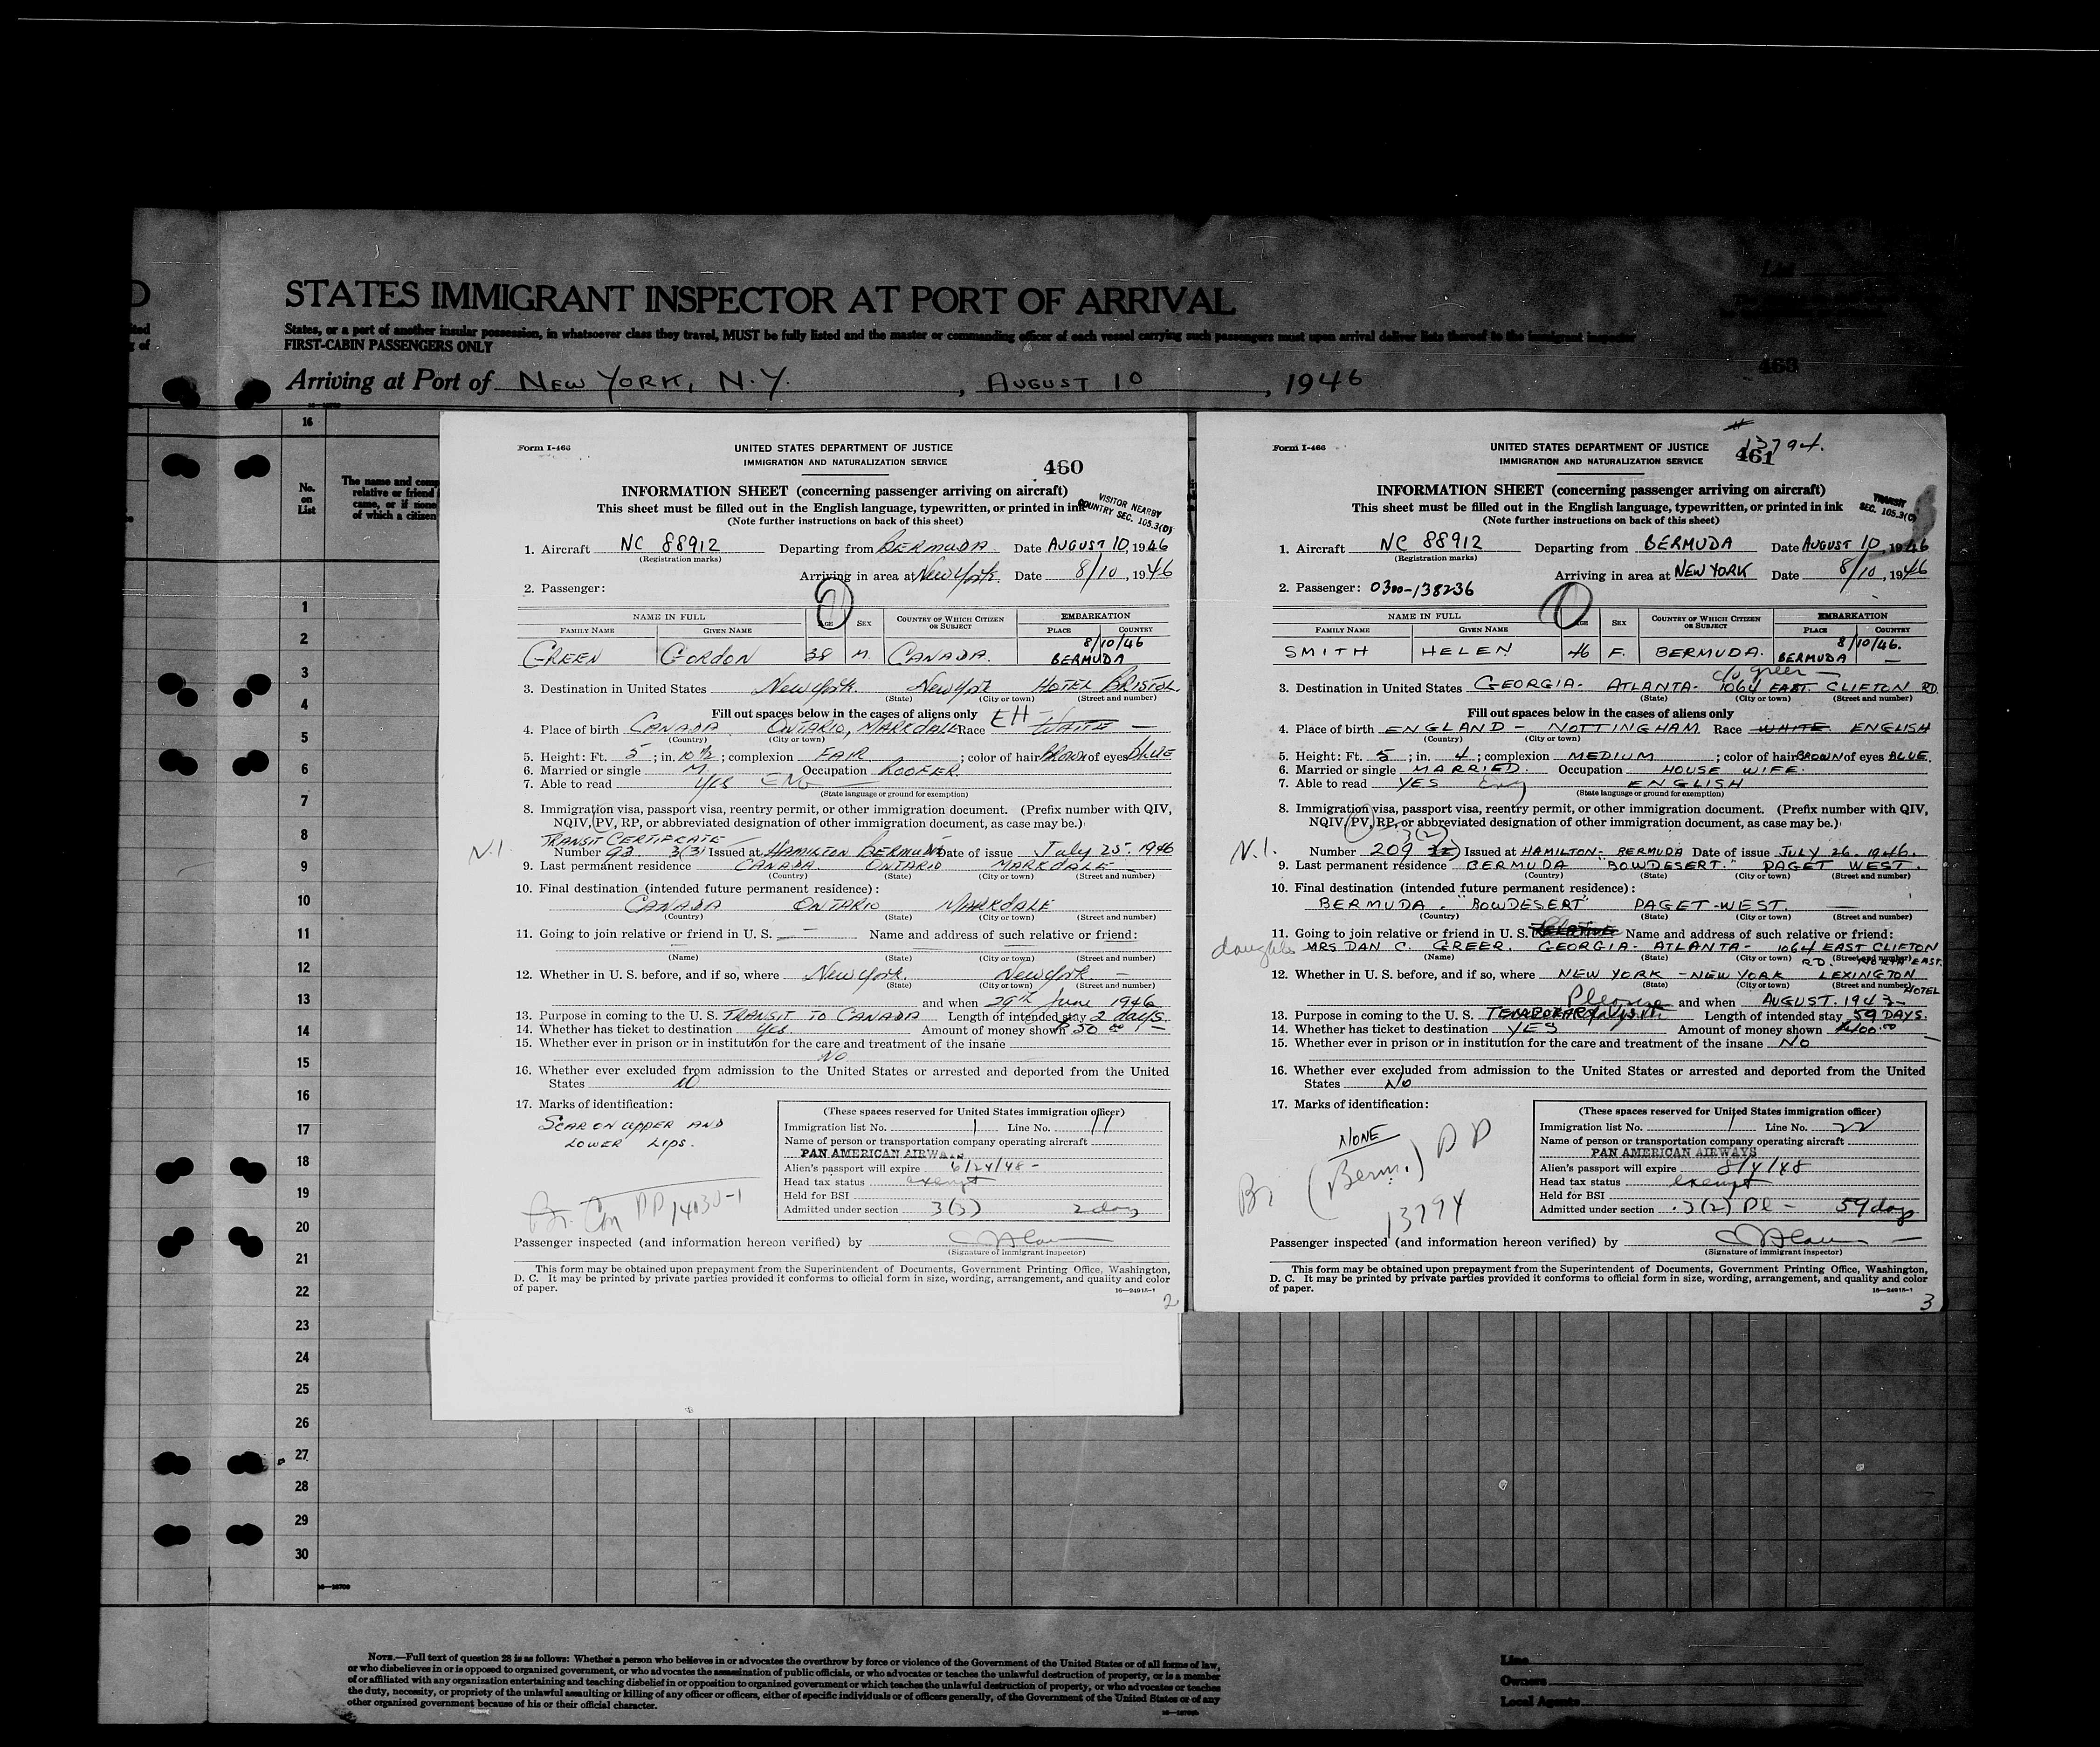 STATES IMMIGRANT INSPECTOR AT PORT OF ARRIVAL
States, or a port of another insular possession, in whatsoever class they travel, MUST be fully listed and the master or commanding officer of each vessel carrying such passengers must upon arrival deliver lists thereof to the immigrant inspector
FIRST-CABIN PASSENGERS ONLY
Arriving at Port of NEW YORK, N.Y. , AUGUST 10 , 1946
16
No. on List
The name and comp
relative or friend
came, or if none
of which a citizen
1
2
3
4
5
6
7
8
9
10
11
12
13
14
15
16
17
18
19
20
21
22
23
24
25
26
27
28
29
30
Form I-466
UNITED STATES DEPARTMENT OF JUSTICE
IMMIGRATION AND NATURALIZATION SERVICE
460
INFORMATION SHEET (concerning passenger arriving on aircraft)
VISITOR NEARBY
COUNTRY SEC. 105.3(D)
This sheet must be filled out in the English language, typewritten, or printed in ink
(Note further instructions on back of this sheet)
1. Aircraft NC 88912 Departing from BERMUDA Date AUGUST 10, 1946
(Registration marks)
Arriving in area at New York. Date 8/10, 1946
2. Passenger:
NAME IN FULL AGE SEX COUNTRY OF WHICH CITIZEN OR SUBJECT EMBARKATION
FAMILY NAME GIVEN NAME PLACE COUNTRY
8/10/46
GREEN GORDON 38 M. CANADA. BERMUDA
3. Destination in United States New York. New York HOTEL BRISTOL.
(State) (City or town) (Street and number)
Fill out spaces below in the cases of aliens only
4. Place of birth CANADA ONTARIO, MARKDALE Race EH WHITE
(Country) (City or town)
5. Height: Ft. 5 ; in. 10 1/2 ; complexion FAIR ; color of hair BROWN of eyes BLUE
6. Married or single M Occupation ROOFER.
7. Able to read YES ENG
(State language or ground for exemption)
8. Immigration visa, passport visa, reentry permit, or other immigration document. (Prefix number with QIV,
NQIV, PV, RP, or abbreviated designation of other immigration document, as case may be.)
TRANSIT CERTIFICATE
N.I. Number 92 3(3) Issued at HAMILTON BERMUDA Date of issue July 25. 1946
9. Last permanent residence CANADA. ONTARIO MARKDALE
(Country) (State) (City or town) (Street and number)
10. Final destination (intended future permanent residence):
CANADA ONTARIO MARKDALE
(Country) (State) (City or town) (Street and number)
11. Going to join relative or friend in U. S. — Name and address of such relative or friend:
(Name) (State) (City or town) (Street and number)
12. Whether in U. S. before, and if so, where New York. New York. —
(State) (City or town) (Street and number)
and when 29th June 1946
13. Purpose in coming to the U. S. TRANSIT TO CANADA Length of intended stay 2 days.
14. Whether has ticket to destination Yes Amount of money shown $50 00
15. Whether ever in prison or in institution for the care and treatment of the insane
NO
16. Whether ever excluded from admission to the United States or arrested and deported from the United
States NO
17. Marks of identification:
SCAR ON UPPER AND
LOWER LIPS.
(These spaces reserved for United States immigration officer)
Immigration list No. 1 Line No. 11
Name of person or transportation company operating aircraft
PAN AMERICAN AIRWAYS
Alien's passport will expire 6/24/48 -
Head tax status exempt
Held for BSI
Admitted under section 3(3) 2 day
Br. Can PP 14030-1
Passenger inspected (and information hereon verified) by
(Signature of immigrant inspector)
This form may be obtained upon prepayment from the Superintendent of Documents, Government Printing Office, Washington,
D. C. It may be printed by private parties provided it conforms to official form in size, wording, arrangement, and quality and color
of paper.
16—24915-1
2
Form I-466
UNITED STATES DEPARTMENT OF JUSTICE
IMMIGRATION AND NATURALIZATION SERVICE
# 13794.
461
INFORMATION SHEET (concerning passenger arriving on aircraft)
TRANSIT
SEC. 105.3(C)
This sheet must be filled out in the English language, typewritten, or printed in ink
(Note further instructions on back of this sheet)
1. Aircraft NC 88912 Departing from BERMUDA Date AUGUST 10, 1946
(Registration marks)
Arriving in area at NEW YORK Date 8/10, 1946
2. Passenger: 0300-138236
NAME IN FULL AGE SEX COUNTRY OF WHICH CITIZEN OR SUBJECT EMBARKATION
FAMILY NAME GIVEN NAME PLACE COUNTRY
8/10/46.
SMITH HELEN 46 F. BERMUDA. BERMUDA —
c/o Greer —
3. Destination in United States GEORGIA- ATLANTA- 1064 EAST CLIFTON RD.
(State) (City or town) (Street and number)
Fill out spaces below in the cases of aliens only
4. Place of birth ENGLAND - NOTTINGHAM Race WHITE ENGLISH
(Country) (City or town)
5. Height: Ft. 5 ; in. 4 ; complexion MEDIUM ; color of hair BROWN of eyes BLUE.
6. Married or single MARRIED. Occupation HOUSE WIFE.
7. Able to read YES Eng ENGLISH
(State language or ground for exemption)
8. Immigration visa, passport visa, reentry permit, or other immigration document. (Prefix number with QIV,
NQIV, PV, RP, or abbreviated designation of other immigration document, as case may be.)
3(2)
N.I. Number 209 Issued at HAMILTON- BERMUDA Date of issue JULY 26. 1946.
9. Last permanent residence BERMUDA "BOWDESERT." PAGET WEST.
(Country) (State) (City or town) (Street and number)
10. Final destination (intended future permanent residence):
BERMUDA. "BOWDESERT" PAGET-WEST. —
(Country) (State) (City or town) (Street and number)
11. Going to join relative or friend in U. S. Name and address of such relative or friend:
daughter MRS DAN C. GREER. GEORGIA- ATLANTA- 1064 EAST CLIFTON
(Name) (State) (City or town) (Street and number)
RD. NORTH EAST.
12. Whether in U. S. before, and if so, where NEW YORK - NEW YORK LEXINGTON
(State) (City or town) (Street and number) HOTEL
Pleasure and when AUGUST. 1943-
13. Purpose in coming to the U. S. TEMPORARY VISIT. Length of intended stay 59 DAYS.
14. Whether has ticket to destination YES Amount of money shown $400.00
15. Whether ever in prison or in institution for the care and treatment of the insane NO
16. Whether ever excluded from admission to the United States or arrested and deported from the United
States NO
17. Marks of identification:
NONE
Br (Berm.) PP
13794
(These spaces reserved for United States immigration officer)
Immigration list No. 1 Line No. 22
Name of person or transportation company operating aircraft
PAN AMERICAN AIRWAYS
Alien's passport will expire 8/4/48
Head tax status exempt
Held for BSI
Admitted under section 3(2) Pl - 59 days
Passenger inspected (and information hereon verified) by
(Signature of immigrant inspector)
This form may be obtained upon prepayment from the Superintendent of Documents, Government Printing Office, Washington,
D. C. It may be printed by private parties provided it conforms to official form in size, wording, arrangement, and quality and color
of paper.
16—24915-1
3
NOTE.—Full text of question 28 is as follows: Whether a person who believes in or advocates the overthrow by force or violence of the Government of the United States or of all forms of law,
or who disbelieves in or is opposed to organized government, or who advocates the assassination of public officials, or who advocates or teaches the unlawful destruction of property, or is a member
of or affiliated with any organization entertaining and teaching disbelief in or opposition to organized government or which teaches the unlawful destruction of property, or who advocates or teaches
the duty, necessity, or propriety of the unlawful assaulting or killing of any officer or officers, either of specific individuals or of officers generally, of the Government of the United States or of any
other organized government because of his or their official character.
Line
Owners
Local Agents